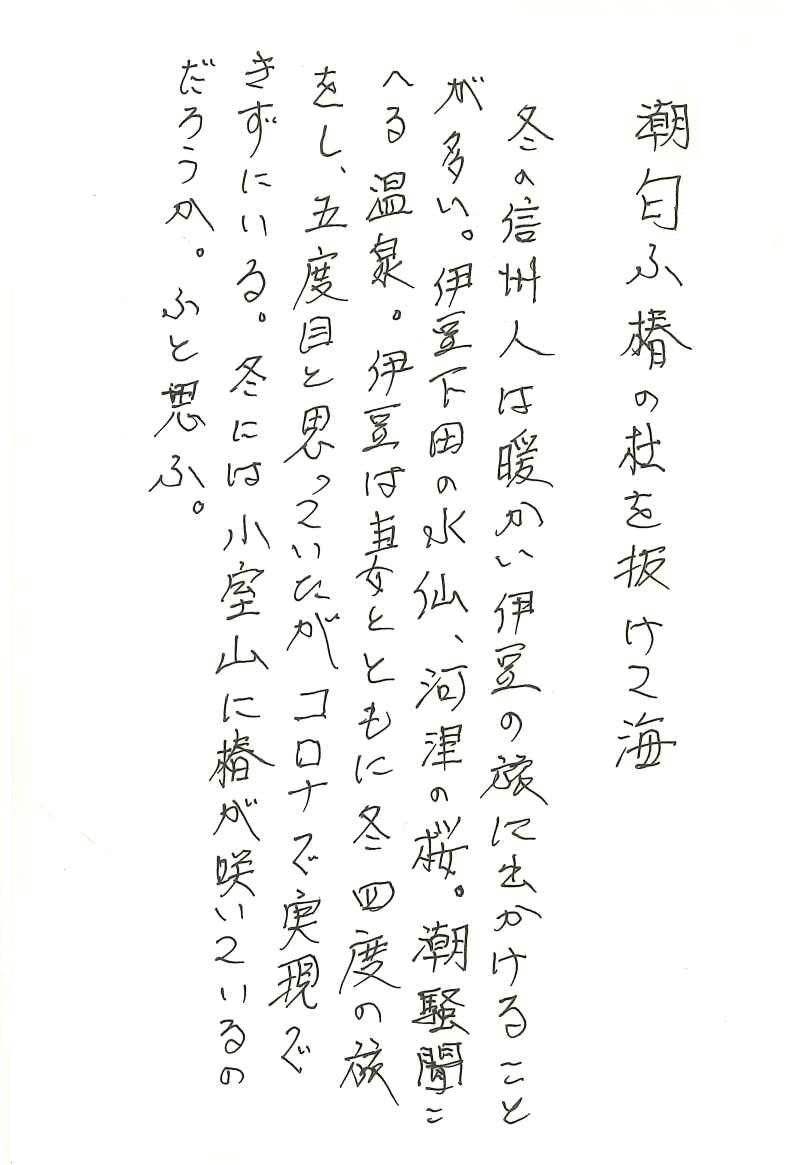 潮匂ふ椿の杜を抜けて海
冬の信州人は暖かい伊豆の旅に出かけること
が多い。伊豆下田の水仙、河津の桜。潮騒聞こ
へる温泉。伊豆は妻とともに冬四度の旅
をし、五度目と思っていたがコロナで実現で
きずにいる。冬には小室山に椿が咲いているの
だろうか。ふと思ふ。